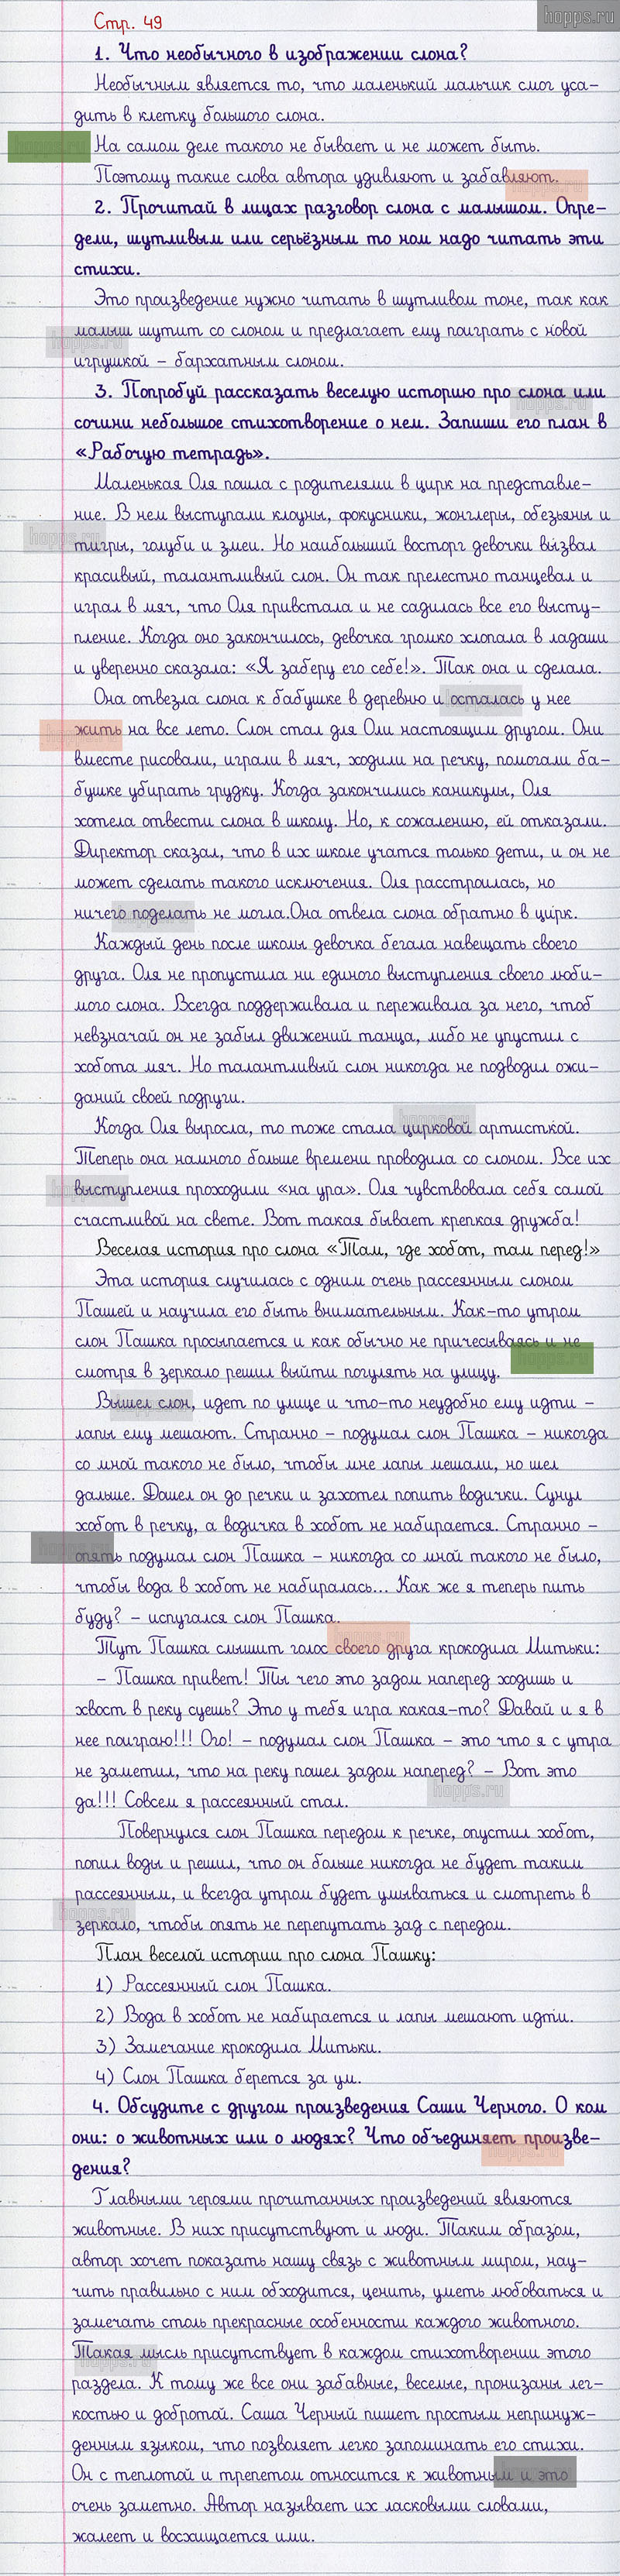 hopps.ru
Стр. 49
1. Что необычного в изображении слона?
Необычным является то, что маленький мальчик смог уса-
дить в клетку большого слона.
На самом деле такого не бывает и не может быть.
Поэтому такие слова автора удивляют и забавляют.
2. Прочитай в лицах разговор слона с малышом. Опре-
дели, шутливым или серьёзным то ном надо читать эти
стихи.
Это произведение нужно читать в шутливом тоне, так как
малыш шутит со слоном и предлагает ему поиграть с новой
игрушкой – бархатным слоном.
3. Попробуй рассказать веселую историю про слона или
сочини небольшое стихотворение о нем. Запиши его план в
«Рабочую тетрадь».
Маленькая Оля пошла с родителями в цирк на представле-
ние. В нем выступали клоуны, фокусники, жонглеры, обезьяны и
тигры, голуби и змеи. Но наибольший восторг девочки вызвал
красивый, талантливый слон. Он так прелестно танцевал и
играл в мяч, что Оля привстала и не садилась все его высту-
пление. Когда оно закончилось, девочка громко хлопала в ладоши
и уверенно сказала: «Я заберу его себе!». Так она и сделала.
Она отвезла слона к бабушке в деревню и осталась у нее
жить на все лето. Слон стал для Оли настоящим другом. Они
вместе рисовали, играли в мяч, ходили на речку, помогали ба-
бушке убирать грудку. Когда закончились каникулы, Оля
хотела отвести слона в школу. Но, к сожалению, ей отказали.
Директор сказал, что в их школе учатся только дети, и он не
может сделать такого исключения. Оля расстроилась, но
ничего поделать не могла.Она отвела слона обратно в цирк.
Каждый день после школы девочка бегала навещать своего
друга. Оля не пропустила ни единого выступления своего люби-
мого слона. Всегда поддерживала и переживала за него, чтоб
невзначай он не забыл движений танца, либо не упустил с
хобота мяч. Но талантливый слон никогда не подводил ожи-
даний своей подруги.
Когда Оля выросла, то тоже стала цирковой артисткой.
Теперь она намного больше времени проводила со слоном. Все их
выступления проходили «на ура». Оля чувствовала себя самой
счастливой на свете. Вот такая бывает крепкая дружба!
Веселая история про слона «Там, где хобот, там перед!»
Эта история случилась с одним очень рассеянным слоном
Пашей и научила его быть внимательным. Как-то утром
слон Пашка просыпается и как обычно не причесываясь и не
смотря в зеркало решил выйти погулять на улицу.
Вышел слон, идет по улице и что-то неудобно ему идти –
лапы ему мешают. Странно – подумал слон Пашка – никогда
со мной такого не было, чтобы мне лапы мешали, но шел
дальше. Дошел он до речки и захотел попить водички. Сунул
хобот в речку, а водичка в хобот не набирается. Странно –
опять подумал слон Пашка – никогда со мной такого не было,
чтобы вода в хобот не набиралась... Как же я теперь пить
буду? – испугался слон Пашка.
Тут Пашка слышит голос своего друга крокодила Митьки:
– Пашка привет! Ты чего это задом наперед ходишь и
хвост в реку суешь? Это у тебя игра какая-то? Давай и я в
нее поиграю!!! Ого! – подумал слон Пашка – это что я с утра
не заметил, что на реку пошел задом наперед? – Вот это
да!!! Совсем я рассеянный стал.
Повернулся слон Пашка передом к речке, опустил хобот,
попил воды и решил, что он больше никогда не будет таким
рассеянным, и всегда утром будет умываться и смотреть в
зеркало, чтобы опять не перепутать зад с передом.
План веселой истории про слона Пашку:
1) Рассеянный слон Пашка.
2) Вода в хобот не набирается и лапы мешают идти.
3) Замечание крокодила Митьки.
4) Слон Пашка берется за ум.
4. Обсудите с другом произведения Саши Черного. О ком
они: о животных или о людях? Что объединяет произве-
дения?
Главными героями прочитанных произведений являются
животные. В них присутствуют и люди. Таким образом,
автор хочет показать нашу связь с животным миром, нау-
чить правильно с ним обходится, ценить, уметь любоваться и
замечать столь прекрасные особенности каждого животного.
Такая мысль присутствует в каждом стихотворении этого
раздела. К тому же все они забавные, веселые, пронизаны лег-
костью и добротой. Саша Черный пишет простым непринуж-
денным языком, что позволяет легко запоминать его стихи.
Он с теплотой и трепетом относится к животным и это
очень заметно. Автор называет их ласковыми словами,
жалеет и восхищается ими.